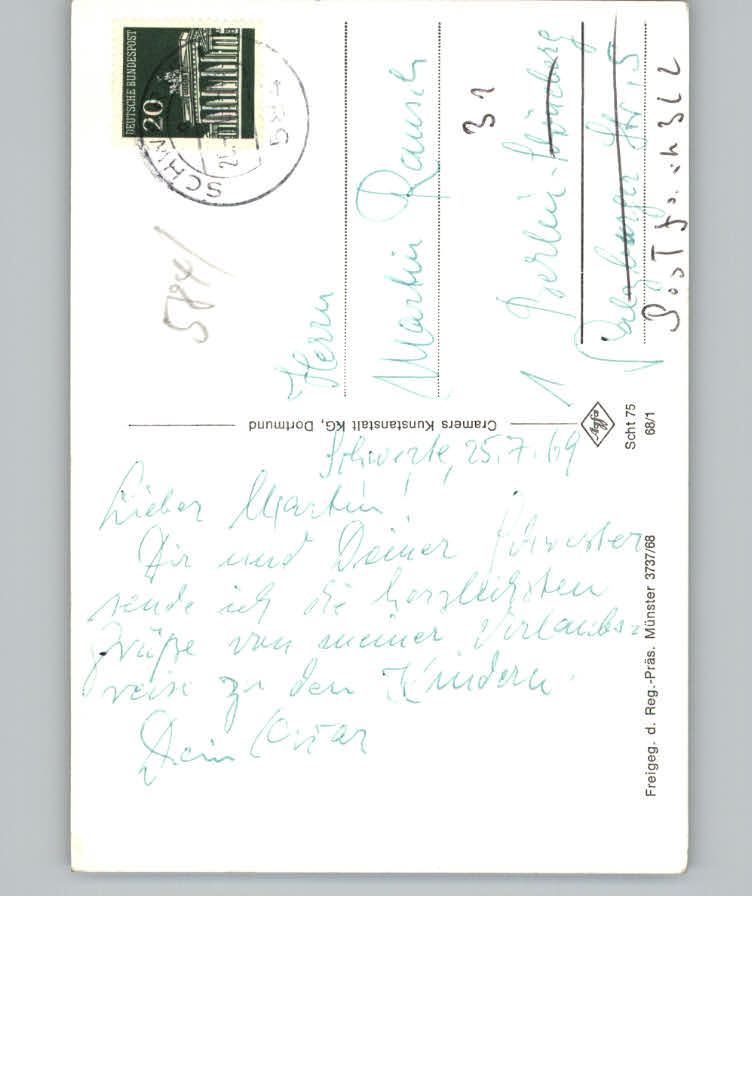 Schwerte, 25.7.69
Lieber Martin!
Dir und Deiner Schwester
sende ich die herzlichsten
Grüße von meiner Urlaubs-
reise zu den Kindern.
Dein Oskar
DEUTSCHE BUNDESPOST
20
SCHW
584
584/
Herrn
Martin Rausch
31
1 Berlin-
Salzburger Str. 15
Postfach 322
Cramers Kunstanstalt KG, Dortmund
Agfa
Scht 75
68/1
Freigeg. d. Reg.-Präs. Münster 3737/68